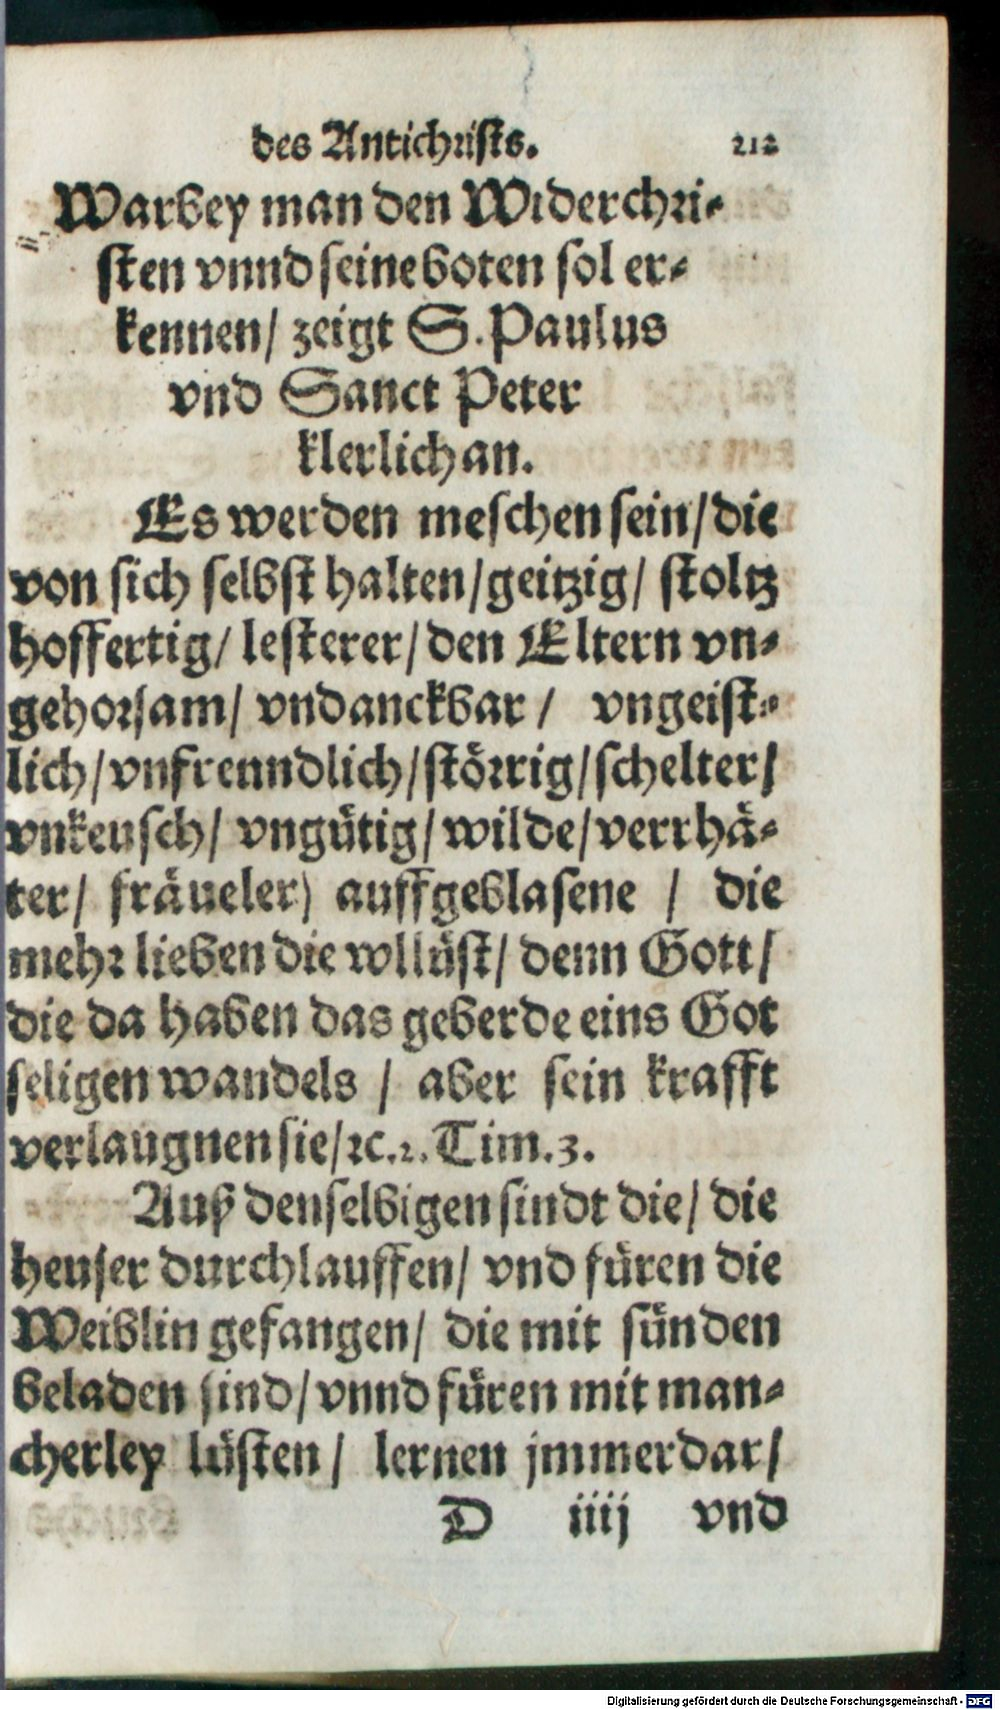 des Antichrists. 212
Warbey man den Widerchri-
sten vnnd seine boten sol er-
kennen/ zeigt S. Paulus
vnd Sanct Peter
klerlich an.
Es werden meschen sein/ die
von sich selbst halten/ geitzig/ stoltz
hoffertig/ lesterer/ den Eltern vn-
gehorsam/ vndanckbar/ vngeist-
lich/ vnfrenndlich/ störrig/ schelter/
vnkeusch/ vngütig/ wilde/ verrhä-
ter/ fräueler) auffgeblasene / die
mehr lieben die wllüst/ denn Gott/
die da haben das geberde eins Got
seligen wandels / aber sein krafft
verlaugnen sie/ ꝛc. 2. Tim. 3.
Auß denselbigen sindt die/ die
heuser durchlauffen/ vnd füren die
Weiblin gefangen/ die mit sünden
beladen sind/ vnnd füren mit man-
cherley lüsten/ lernen jmmerdar/
D iiij vnd
Digitalisierung gefördert durch die Deutsche Forschungsgemeinschaft - DFG